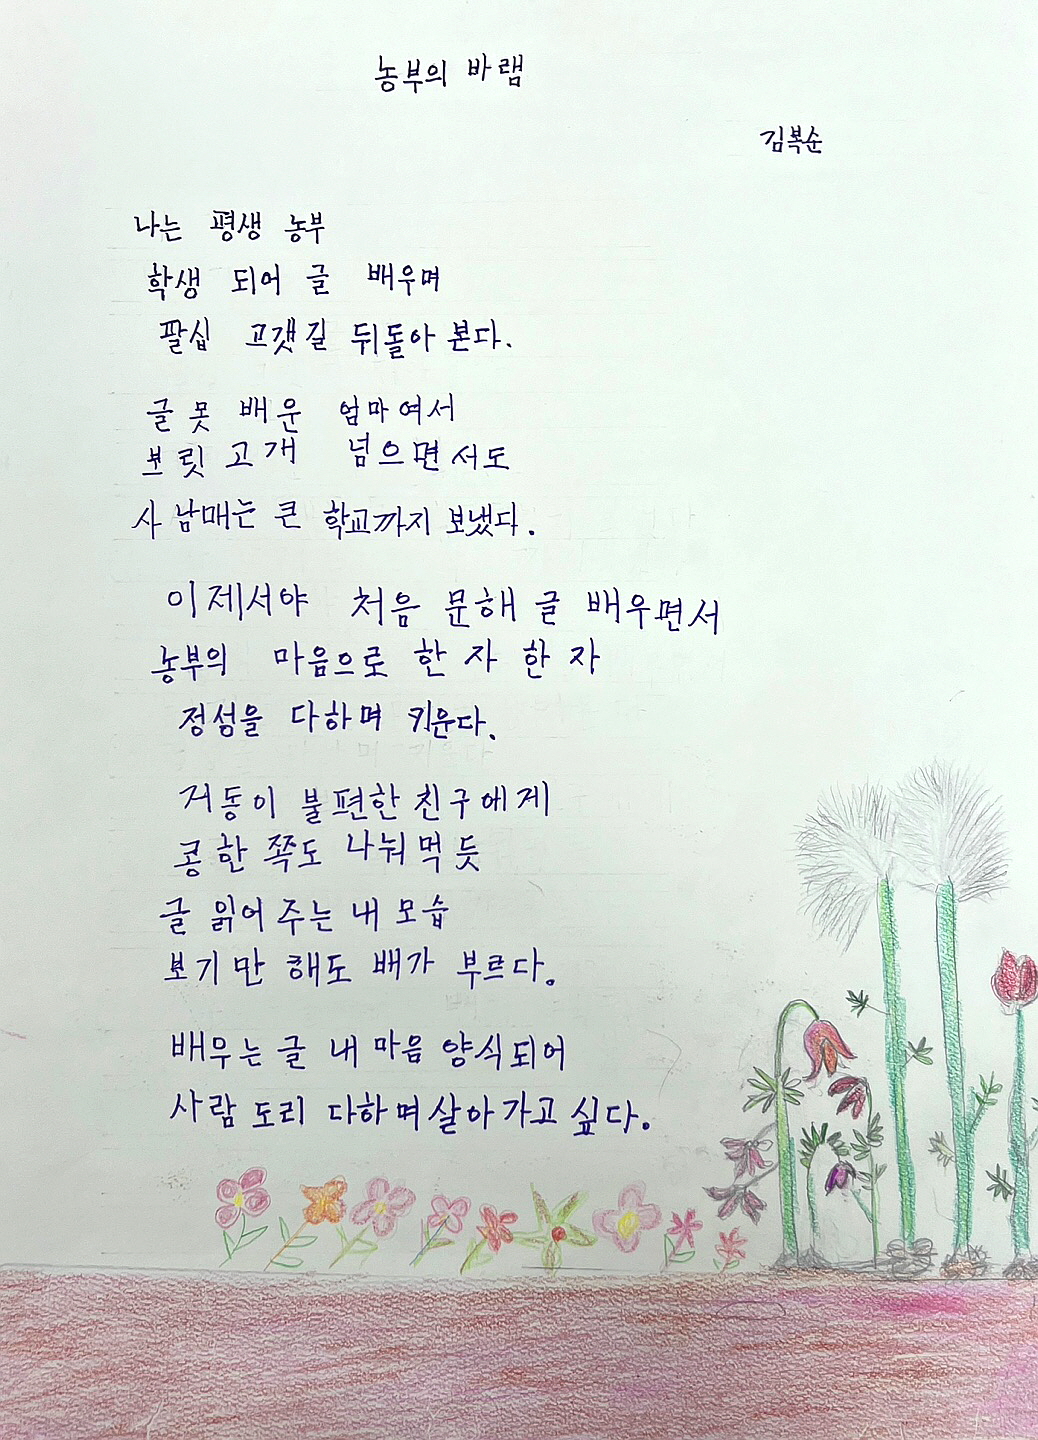 농부의 바램
김복순
나는 평생 농부
학생 되어 글 배우며
팔십 고갯길 뒤돌아 본다.
글 못 배운 엄마여서
보릿 고개 넘으면서도
사 남매는 큰 학교까지 보냈다.
이제서야 처음 문해 글 배우면서
농부의 마음으로 한 자 한 자
정성을 다하며 키운다.
거동이 불편한 친구에게
콩 한 쪽도 나눠 먹 듯
글 읽어 주는 내 모습
보기만 해도 배가 부르다.
배우는 글 내 마음 양식되어
사람 도리 다하며 살아 가고 싶다.